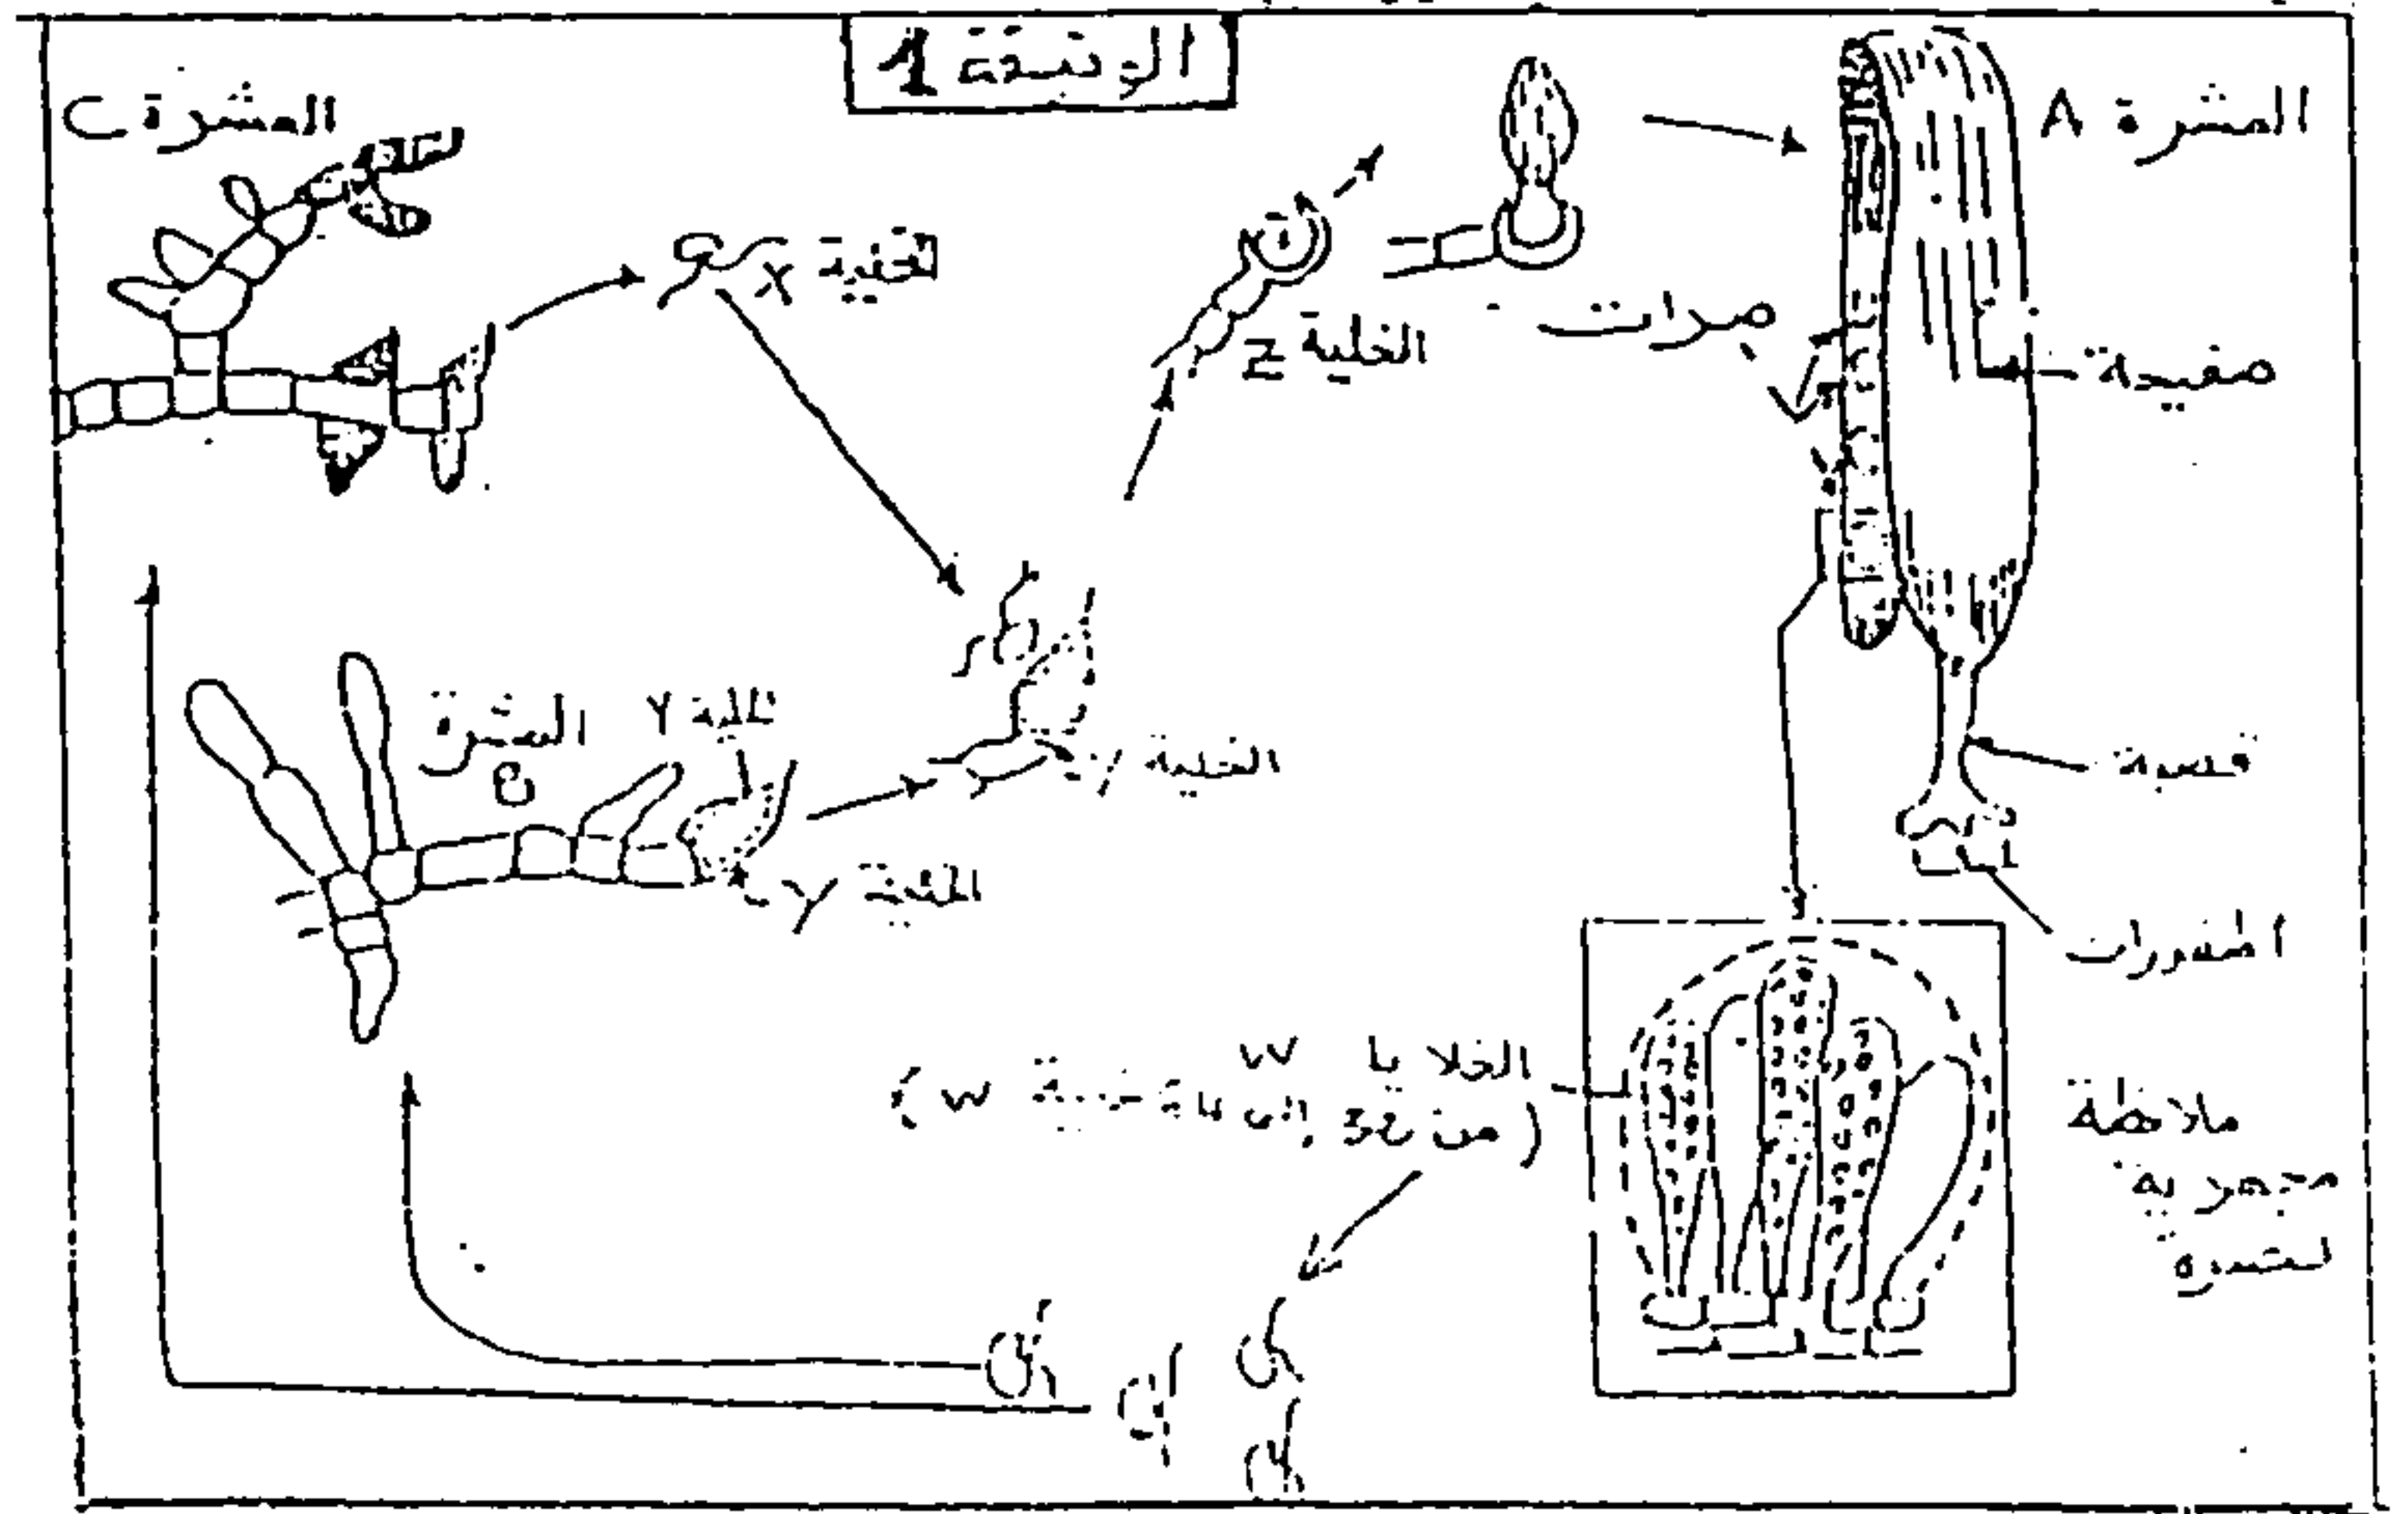 الوثيقة 1
المشرة A
المشرة C
الخلية X
الخلية Z
صرات
صفيحة
قصبة
المشرة
B
الخلية Y
الخلية Y
الخلايا W
(من 32 إلى
W)
ملاحظة
مجهرية
لصرة